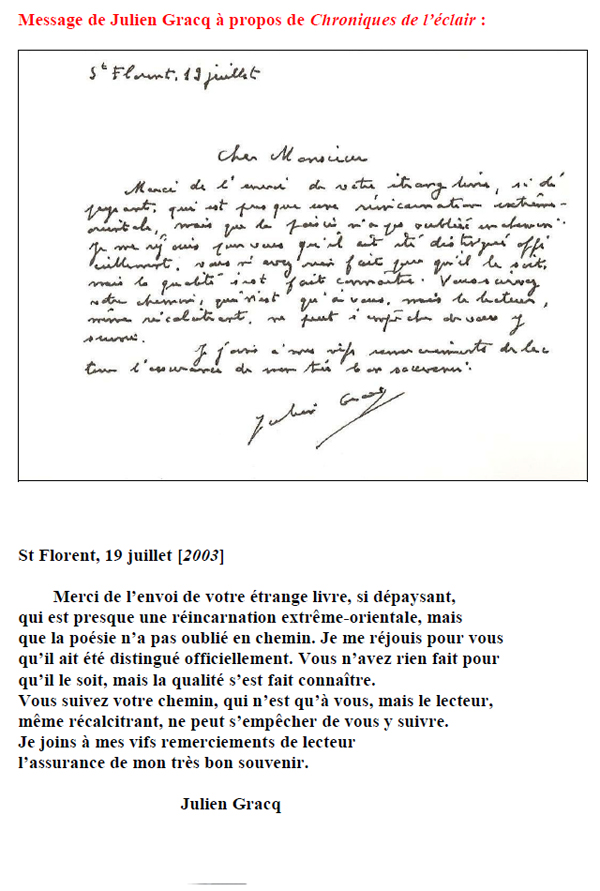 Message de Julien Gracq à propos de Chroniques de l’éclair :
St Florent, 19 juillet
Cher Monsieur
Merci de l'envoi de votre étrange livre, si dé
paysant, qui est presque une réincarnation extrême-
orientale, mais que la poésie n'a pas oublié en chemin.
Je me réjouis pour vous qu'il ait été distingué offi
ciellement. Vous n'avez rien fait pour qu'il le soit,
mais la qualité s'est fait connaître. Vous suivez
votre chemin, qui n'est qu'à vous, mais le lecteur,
même récalcitrant, ne peut s'empêcher de vous y
suivre.
Je joins à mes vifs remerciements de lec
teur l'assurance de mon très bon souvenir.
Julien Gracq
St Florent, 19 juillet [2003]
Merci de l’envoi de votre étrange livre, si dépaysant,
qui est presque une réincarnation extrême-orientale, mais
que la poésie n’a pas oublié en chemin. Je me réjouis pour vous
qu’il ait été distingué officiellement. Vous n’avez rien fait pour
qu’il le soit, mais la qualité s’est fait connaître.
Vous suivez votre chemin, qui n’est qu’à vous, mais le lecteur,
même récalcitrant, ne peut s’empêcher de vous y suivre.
Je joins à mes vifs remerciements de lecteur
l’assurance de mon très bon souvenir.
Julien Gracq